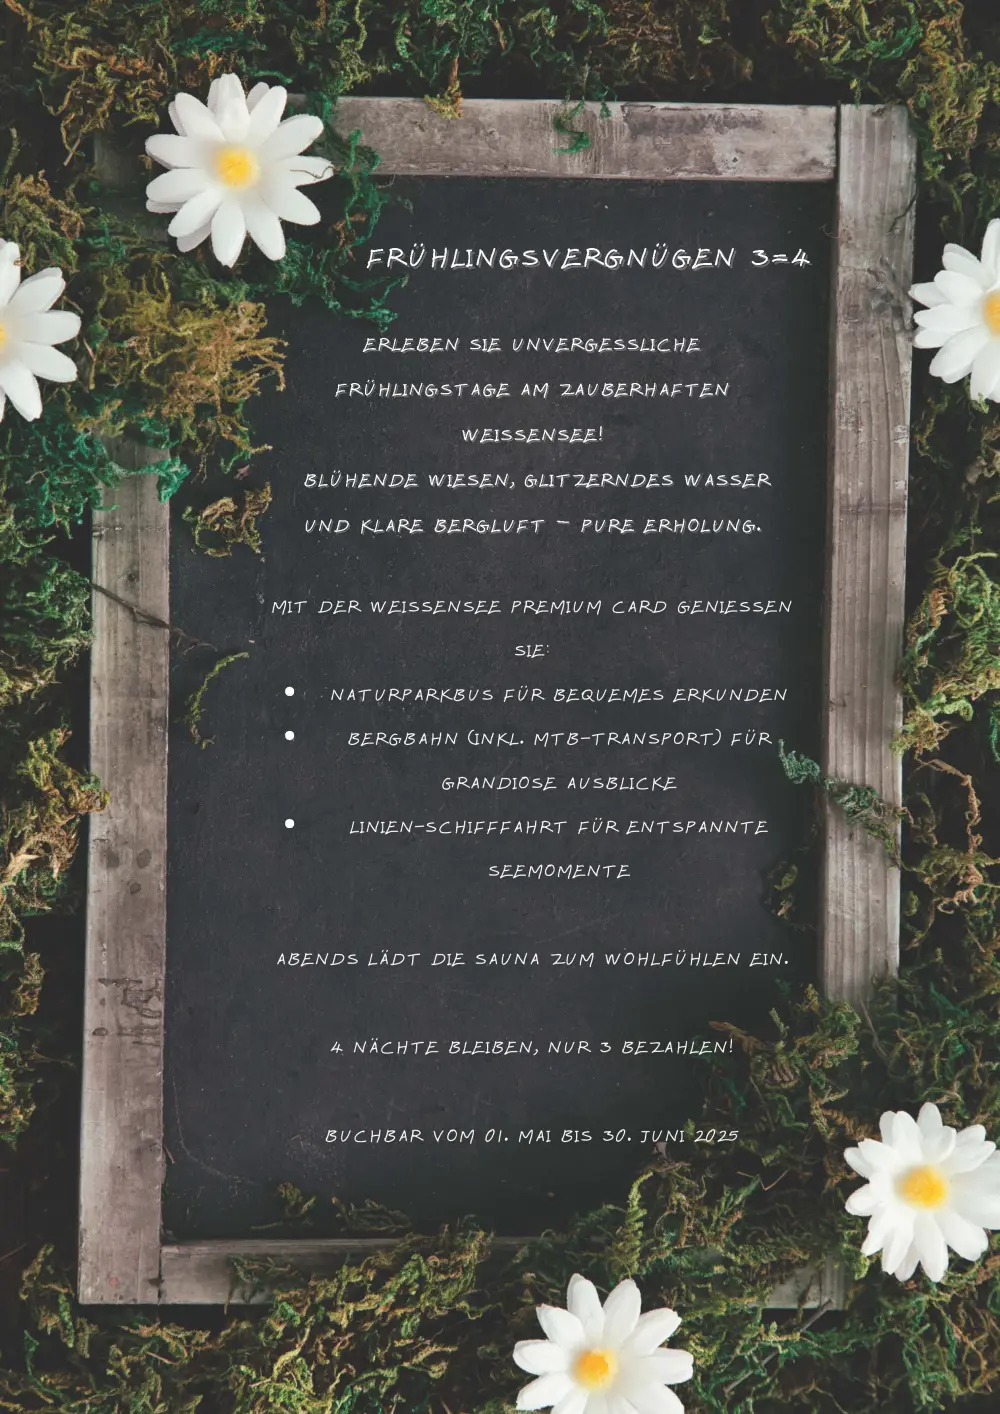 FRÜHLINGSVERGNÜGEN 3=4
ERLEBEN SIE UNVERGESSLICHE
FRÜHLINGSTAGE AM ZAUBERHAFTEN
WEISSENSEE!
BLÜHENDE WIESEN, GLITZERNDES WASSER
UND KLARE BERGLUFT – PURE ERHOLUNG.
MIT DER WEISSENSEE PREMIUM CARD GENIESSEN
SIE:
• NATURPARKBUS FÜR BEQUEMES ERKUNDEN
• BERGBAHN (INKL. MTB-TRANSPORT) FÜR
GRANDIOSE AUSBLICKE
• LINIEN-SCHIFFFAHRT FÜR ENTSPANNTE
SEEMOMENTE
ABENDS LÄDT DIE SAUNA ZUM WOHLFÜHLEN EIN.
4 NÄCHTE BLEIBEN, NUR 3 BEZAHLEN!
BUCHBAR VOM 01. MAI BIS 30. JUNI 2025